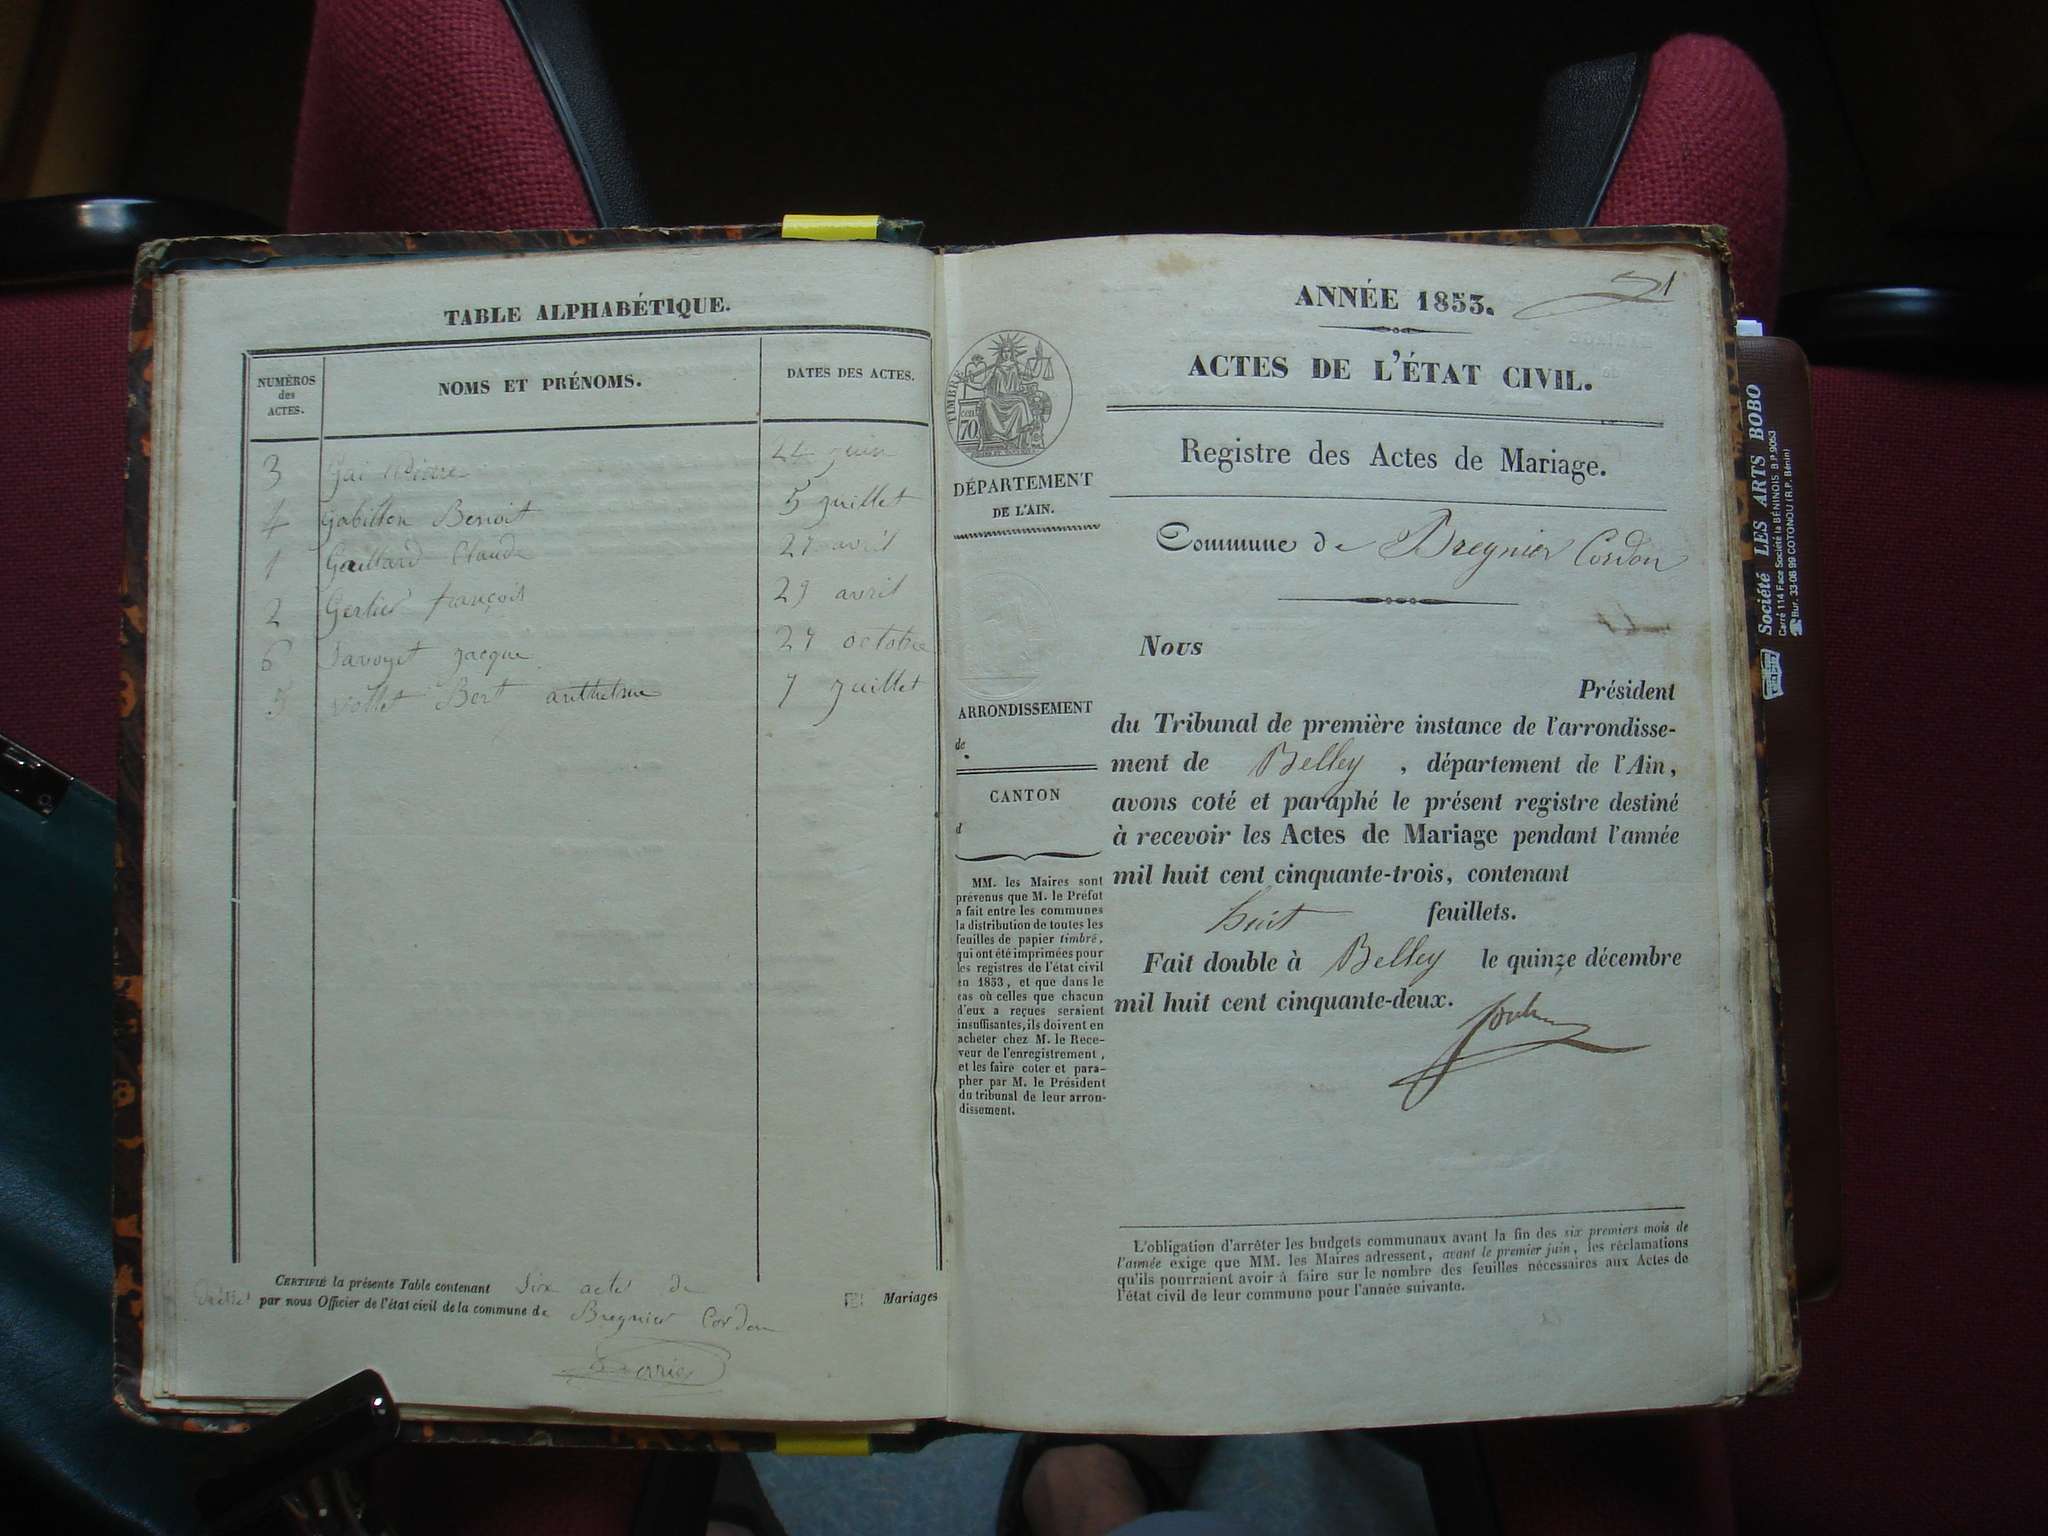 TABLE ALPHABÉTIQUE.
NUMÉROS
des
ACTES.
NOMS ET PRÉNOMS.
DATES DES ACTES.
3 Gai Pierre 24 juin
4 Gabillon Benoit 5 juillet
1 Gaillard Claude 27 avril
2 Gerlier françois 29 avril
6 Savoyet jacque 27 octobre
5 Viollet Bert anthelme 7 juillet
CERTIFIÉ la présente Table contenant Six acté de Mariages
par nous Officier de l'état civil de la commune de Bregnier Cordon
1
ANNÉE 1853.
ACTES DE L'ÉTAT CIVIL.
Registre des Actes de Mariage.
Commune de Bregnier Cordon
TIMBRE
cent
70
DÉPARTEMENT
DE L'AIN.
ARRONDISSEMENT
de
CANTON
d
MM. les Maires sont
prévenus que M. le Préfet
a fait entre les communes
la distribution de toutes les
feuilles de papier timbré,
qui ont été imprimées pour
les registres de l'état civil
en 1853, et que dans le
cas où celles que chacun
d'eux a reçues seraient
insuffisantes, ils doivent en
acheter chez M. le Rece-
veur de l'enregistrement,
et les faire coter et para-
pher par M. le Président
du tribunal de leur arron-
dissement.
Nous
Président
du Tribunal de première instance de l'arrondisse-
ment de Belley, département de l'Ain,
avons coté et paraphé le présent registre destiné
à recevoir les Actes de Mariage pendant l'année
mil huit cent cinquante-trois, contenant
huit feuillets.
Fait double à Belley le quinze décembre
mil huit cent cinquante-deux.
L'obligation d'arrêter les budgets communaux avant la fin des six premiers mois de
l'année exige que MM. les Maires adressent, avant le premier juin, les réclamations
qu'ils pourraient avoir à faire sur le nombre des feuilles nécessaires aux Actes de
l'état civil de leur commune pour l'année suivante.
Société LES ARTS BOBO
Carré 114 Face Société la BÉNINOIS B.P. 9063
Bur. 33-06 99 COTONOU (R.P. Bénin)